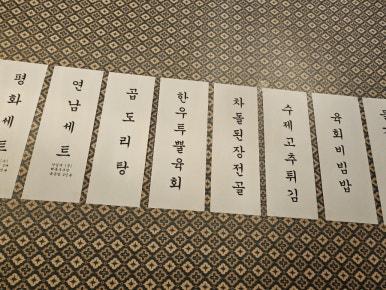 평화세트
연남세트
곱도리탕
한우트러플육회
차돌된장전골
수제고추튀김
육회비빔밥